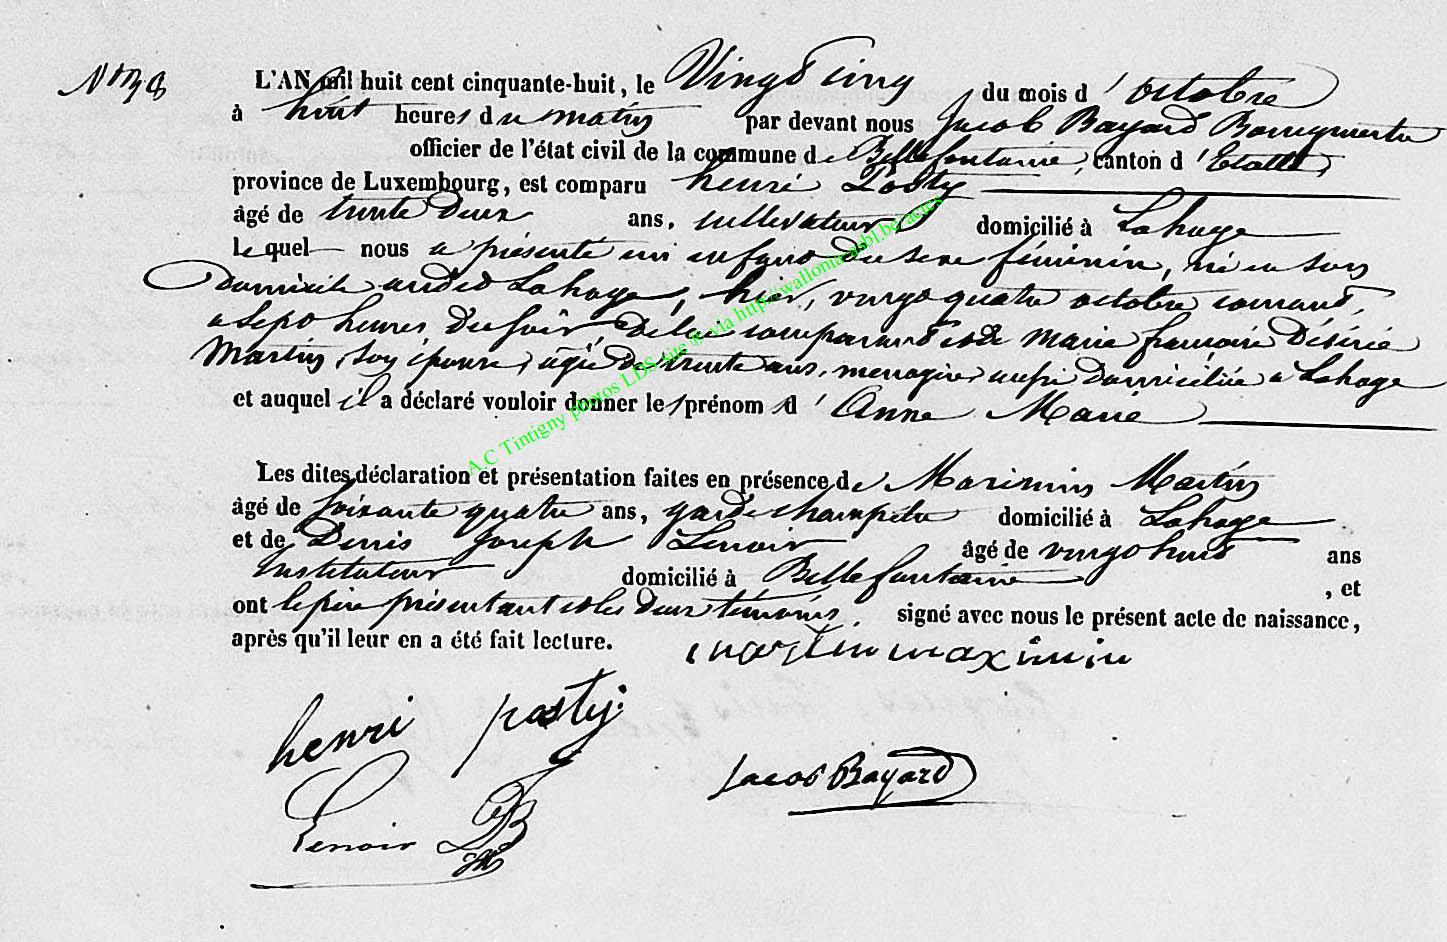 N° 38
L'AN mil huit cent cinquante-huit, le Vingt cinq du mois d'octobre
à huit heures du matin par devant nous Jacob Bayard Bourgmestre
officier de l'état civil de la commune de Bellefontaine, canton d'Etalle,
province de Luxembourg, est comparu henri Posty
âgé de trente deux ans, cultivateur domicilié à Lahage
lequel nous a présenté un enfant du sexe féminin, né en son
domicile audit Lahage, hier, vingt quatre octobre courant,
a sept heures du soir, de lui comparant et de Marie françoise Désirée
Martin, son épouse, agée de trente ans, menagère, aussi domiciliée a Lahage
et auquel il a déclaré vouloir donner les prénoms d'Anne Marie
Les dites déclaration et présentation faites en présence de Maximin Martin
âgé de soixante quatre ans, garde champêtre domicilié à Lahage
et de Denis Joseph Lenoir âgé de vingt huit ans
Instituteur domicilié à Bellefontaine, et
ont le père présentant et les deux témoins, signé avec nous le présent acte de naissance,
après qu'il leur en a été fait lecture.
martin maximin
henri posty
Jacob Bayard
Lenoir DJ
A.C Tintigny photos LDS site © via http://wallonia.asbl.be/actes